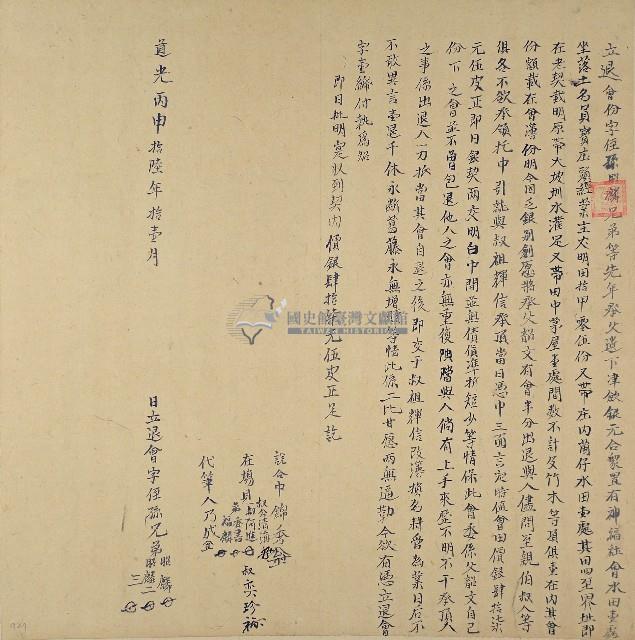 立退會份字侄孫昭麟兄弟等先年承父遺下津飲銀元合眾置有神福社會水田壹處
坐落土名員寶庄頭經業主丈明田拾甲零伍份又帶庄內菌仔水田壹處其田四至界址即
在老契載明原帶大坡圳水灌足又帶田中茅屋壹處間數不計及竹木等項俱壹在內其會
份額載在會簿份明今因乏銀別創愿將承父韶文有會半分出退與人儘問至親伯叔人等
俱各不欲承領托中引就與叔祖輝信承頂當日憑中三面言定時值會田價銀肆拾柒
元伍皮正即日銀契兩交明白中間並無債償準折短少等情保此會委係父韶文自己
份下之會並不曾包退他人之會亦無重復典當與人倘有上手來歷不明不干承頂人
之事係出退人一力抵當其會自退之後即交于叔祖輝信改簿換名掌會為業日后不
敢異言壹退千休永斷葛藤永無增贖等情此係二比甘愿兩無逼勒今欲有憑立退會
字壹紙付執為炤
即日批明寔收到契內價銀肆拾柒元伍皮正足訖
說合中錦秀
在場見 叔奕珍
代筆人乃成
道光丙申拾陸年拾壹月 日立退會字侄孫兄弟昭麟 二 三
國史館臺灣文獻館
TAIWAN HISTORICA
929